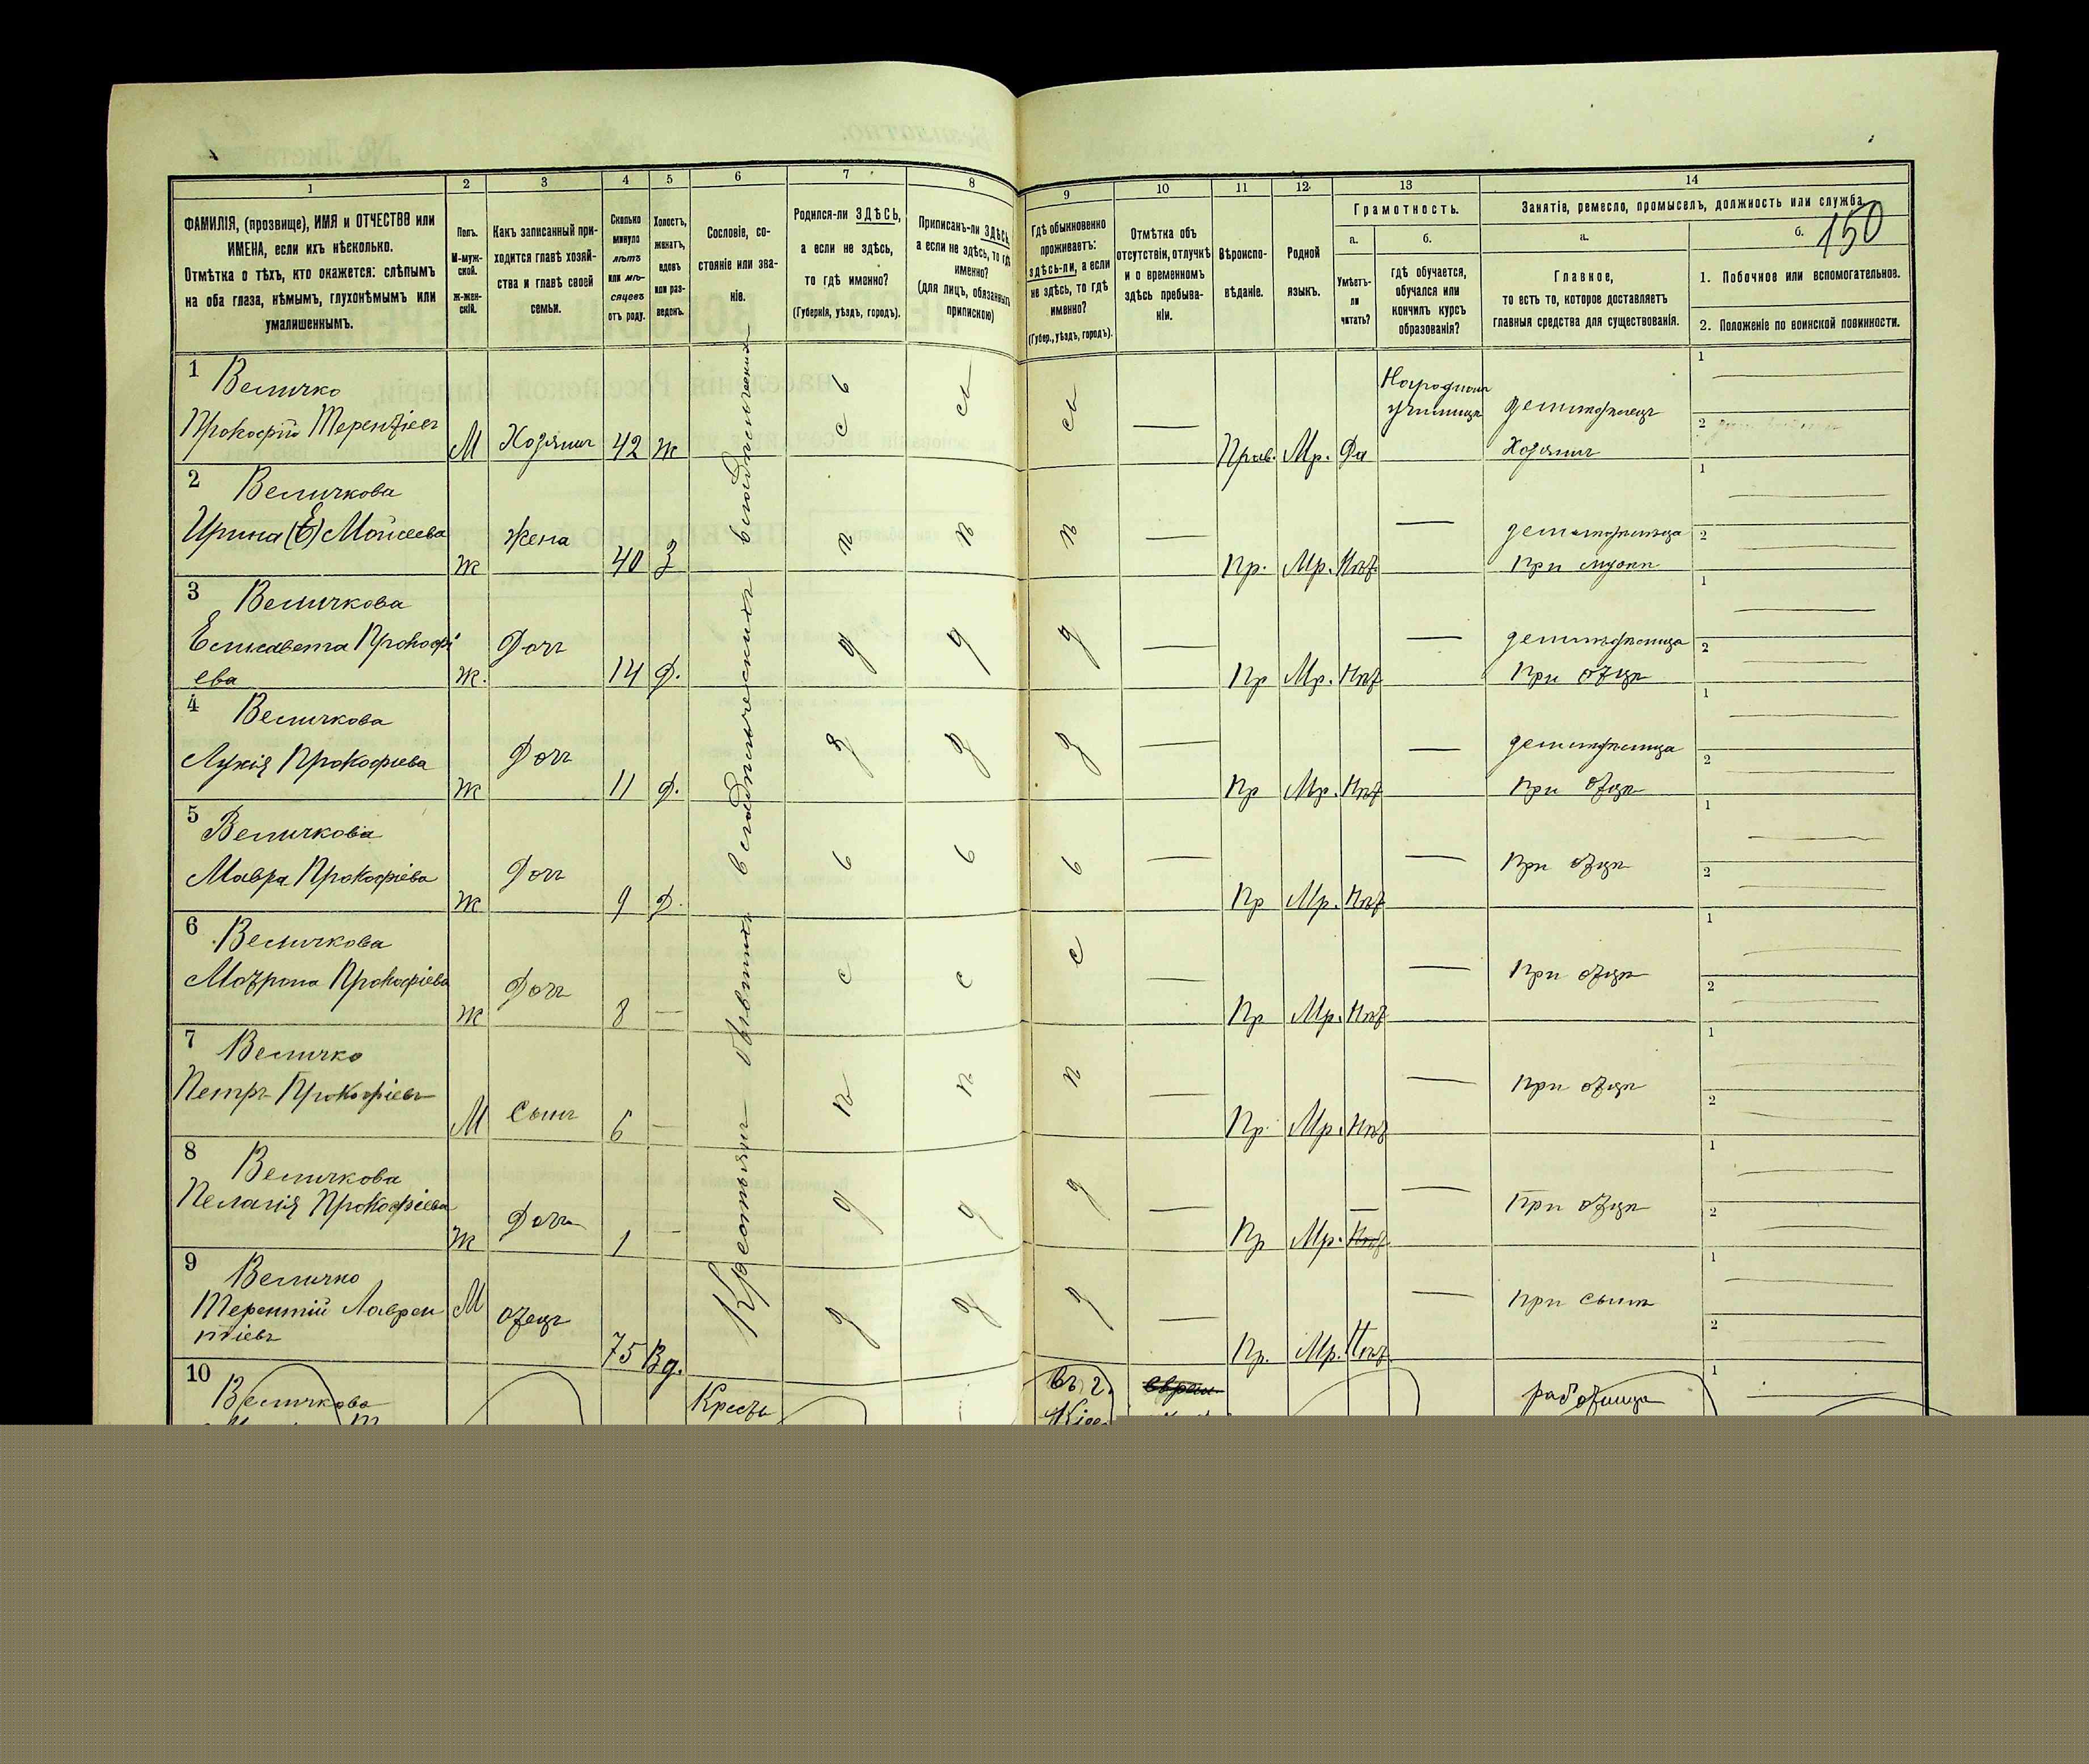 150
1 2 3 4 5 6 7 8 9 10 11 12 13 14
ФАМИЛІЯ, (прозвище), ИМЯ и ОТЧЕСТВО или
ИМЕНА, если ихъ нѣсколько.
Отмѣтка о тѣхъ, кто окажется: слѣпымъ
на оба глаза, нѣмымъ, глухонѣмымъ или
умалишеннымъ.
Полъ.
М-муж-
ской.
Ж-жен-
скій.
Какъ записанный при-
ходится главѣ хозяй-
ства и главѣ своей
семьи.
Сколько
минуло
лѣтъ
или мѣ-
сяцевъ
отъ роду.
Холостъ,
женатъ,
вдовъ
или раз-
веденъ.
Сословіе, со-
стояніе или зва-
ніе.
Родился-ли ЗДѢСЬ,
а если не здѣсь,
то гдѣ именно?
(Губернія, уѣздъ, городъ).
Приписанъ-ли ЗДѢСЬ,
а если не здѣсь, то гдѣ
именно?
(для лицъ, обязанныхъ
припискою)
Гдѣ обыкновенно
проживаетъ:
здѣсь-ли, а если
не здѣсь, то гдѣ
именно?
(Губер., уѣздъ, городъ).
Отмѣтка объ
отсутствіи, отлучкѣ
и о временномъ
здѣсь пребыва-
ніи.
Вѣроиспо-
вѣданіе.
Родной
языкъ.
Грамотность.
а.
Умѣетъ-
ли
читать?
б.
гдѣ обучается,
обучался или
кончилъ курсъ
образованія?
Занятіе, ремесло, промыселъ, должность или служба.
а.
Главное,
то есть то, которое доставляетъ
главныя средства для существованія.
б.
1. Побочное или вспомогательное.
2. Положеніе по воинской повинности.
Крестьяне бывшихъ владѣльческихъ владѣльческихъ
1 Величко
Прокофій Терентіевъ М Хозяинъ 42 ж здѣсь здѣсь здѣсь — Прав. Мр. Да Народномъ
училищѣ земледѣлецъ
Хозяинъ 1 — 2
2 Величкова
Ирина (Е) Моисеева ж Жена 40 З — Пр. Мр. Нѣт. — земледѣлица
при мужѣ 1 — 2 —
3 Величкова
Елисавета Прокофі
ева ж. Дочь 14 д. — Пр Мр. Нѣт — земледѣлица
при отцѣ 1 — 2 —
4 Величкова
Лукія Прокофіева ж Дочь 11 д. — Пр Мр. Нѣт — земледѣлица
при отцѣ 1 — 2 —
5 Величкова
Мавра Прокофіева ж Дочь 9 д. — Пр Мр. Нѣт — при отцѣ 1 — 2 —
6 Величкова
Мотрона Прокофіева ж Дочь 8 — — Пр Мр. Нѣт — при отцѣ 1 — 2 —
7 Величко
Петръ Прокофіевъ М Сынъ 6 — — Пр. Мр. Нѣт — при отцѣ 1 — 2 —
8 Величкова
Пелагія Прокофіева ж Дочь 1 — — Пр Мр. — — при отцѣ 1 — 2 —
9 Величко
Терентій Лаврен
тіевъ М отецъ 75 Вд. — Пр. Мр. Нѣт. — при сынѣ 1 — 2 —
10 Величкова Кресть въ г. работница 1 —